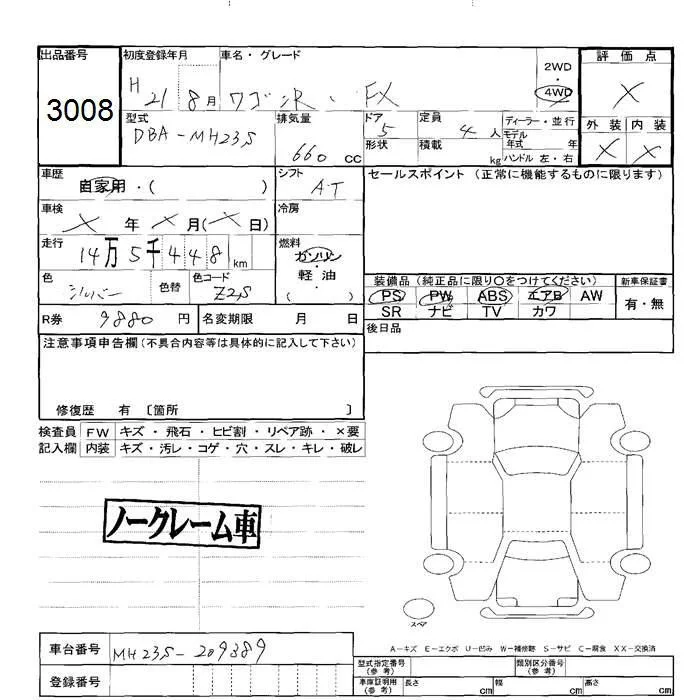 出品番号
3008
初度登録年月
H 21 8月
車名・グレード
ワゴンR・FX
2WD
・
4WD
評価点
X
外装 内装
X X
型式
DBA-MH23S
排気量
660 cc
ドア
5
形状
定員
4 人
積載
kg
ディーラー・並行
モデル
年式 年
ハンドル 左・右
車歴
自家用・( )
シフト
AT
セールスポイント(正常に機能するものに限ります)
車検
X 年 X 月(X 日)
冷房
走行
14万5千448km
燃料
ガソリン
・
軽油
( )
色
シルバー
色替
色コード
Z2S
装備品(純正品に限り○をつけてください)
PS PW ABS エアB AW
SR ナビ TV カワ
新車保証書
有・無
R券 9880 円
名変期限 月 日
後日品
注意事項申告欄(不具合内容等は具体的に記入して下さい)
修復歴 有 〔箇所 〕
検査員 FW キズ・飛石・ヒビ割・リペア跡・×要
記入欄 内装 キズ・汚レ・コゲ・穴・スレ・キレ・破レ
ノークレーム車
スペア
A-キズ E-エクボ U-凹み W-補修跡 S-サビ C-腐食 XX-交換済
車台番号
MH23S-209389
登録番号
型式指定番号
(参考)
類別区分番号
(参考)
車庫証明用
(参考)
長さ cm 幅 cm 高さ cm